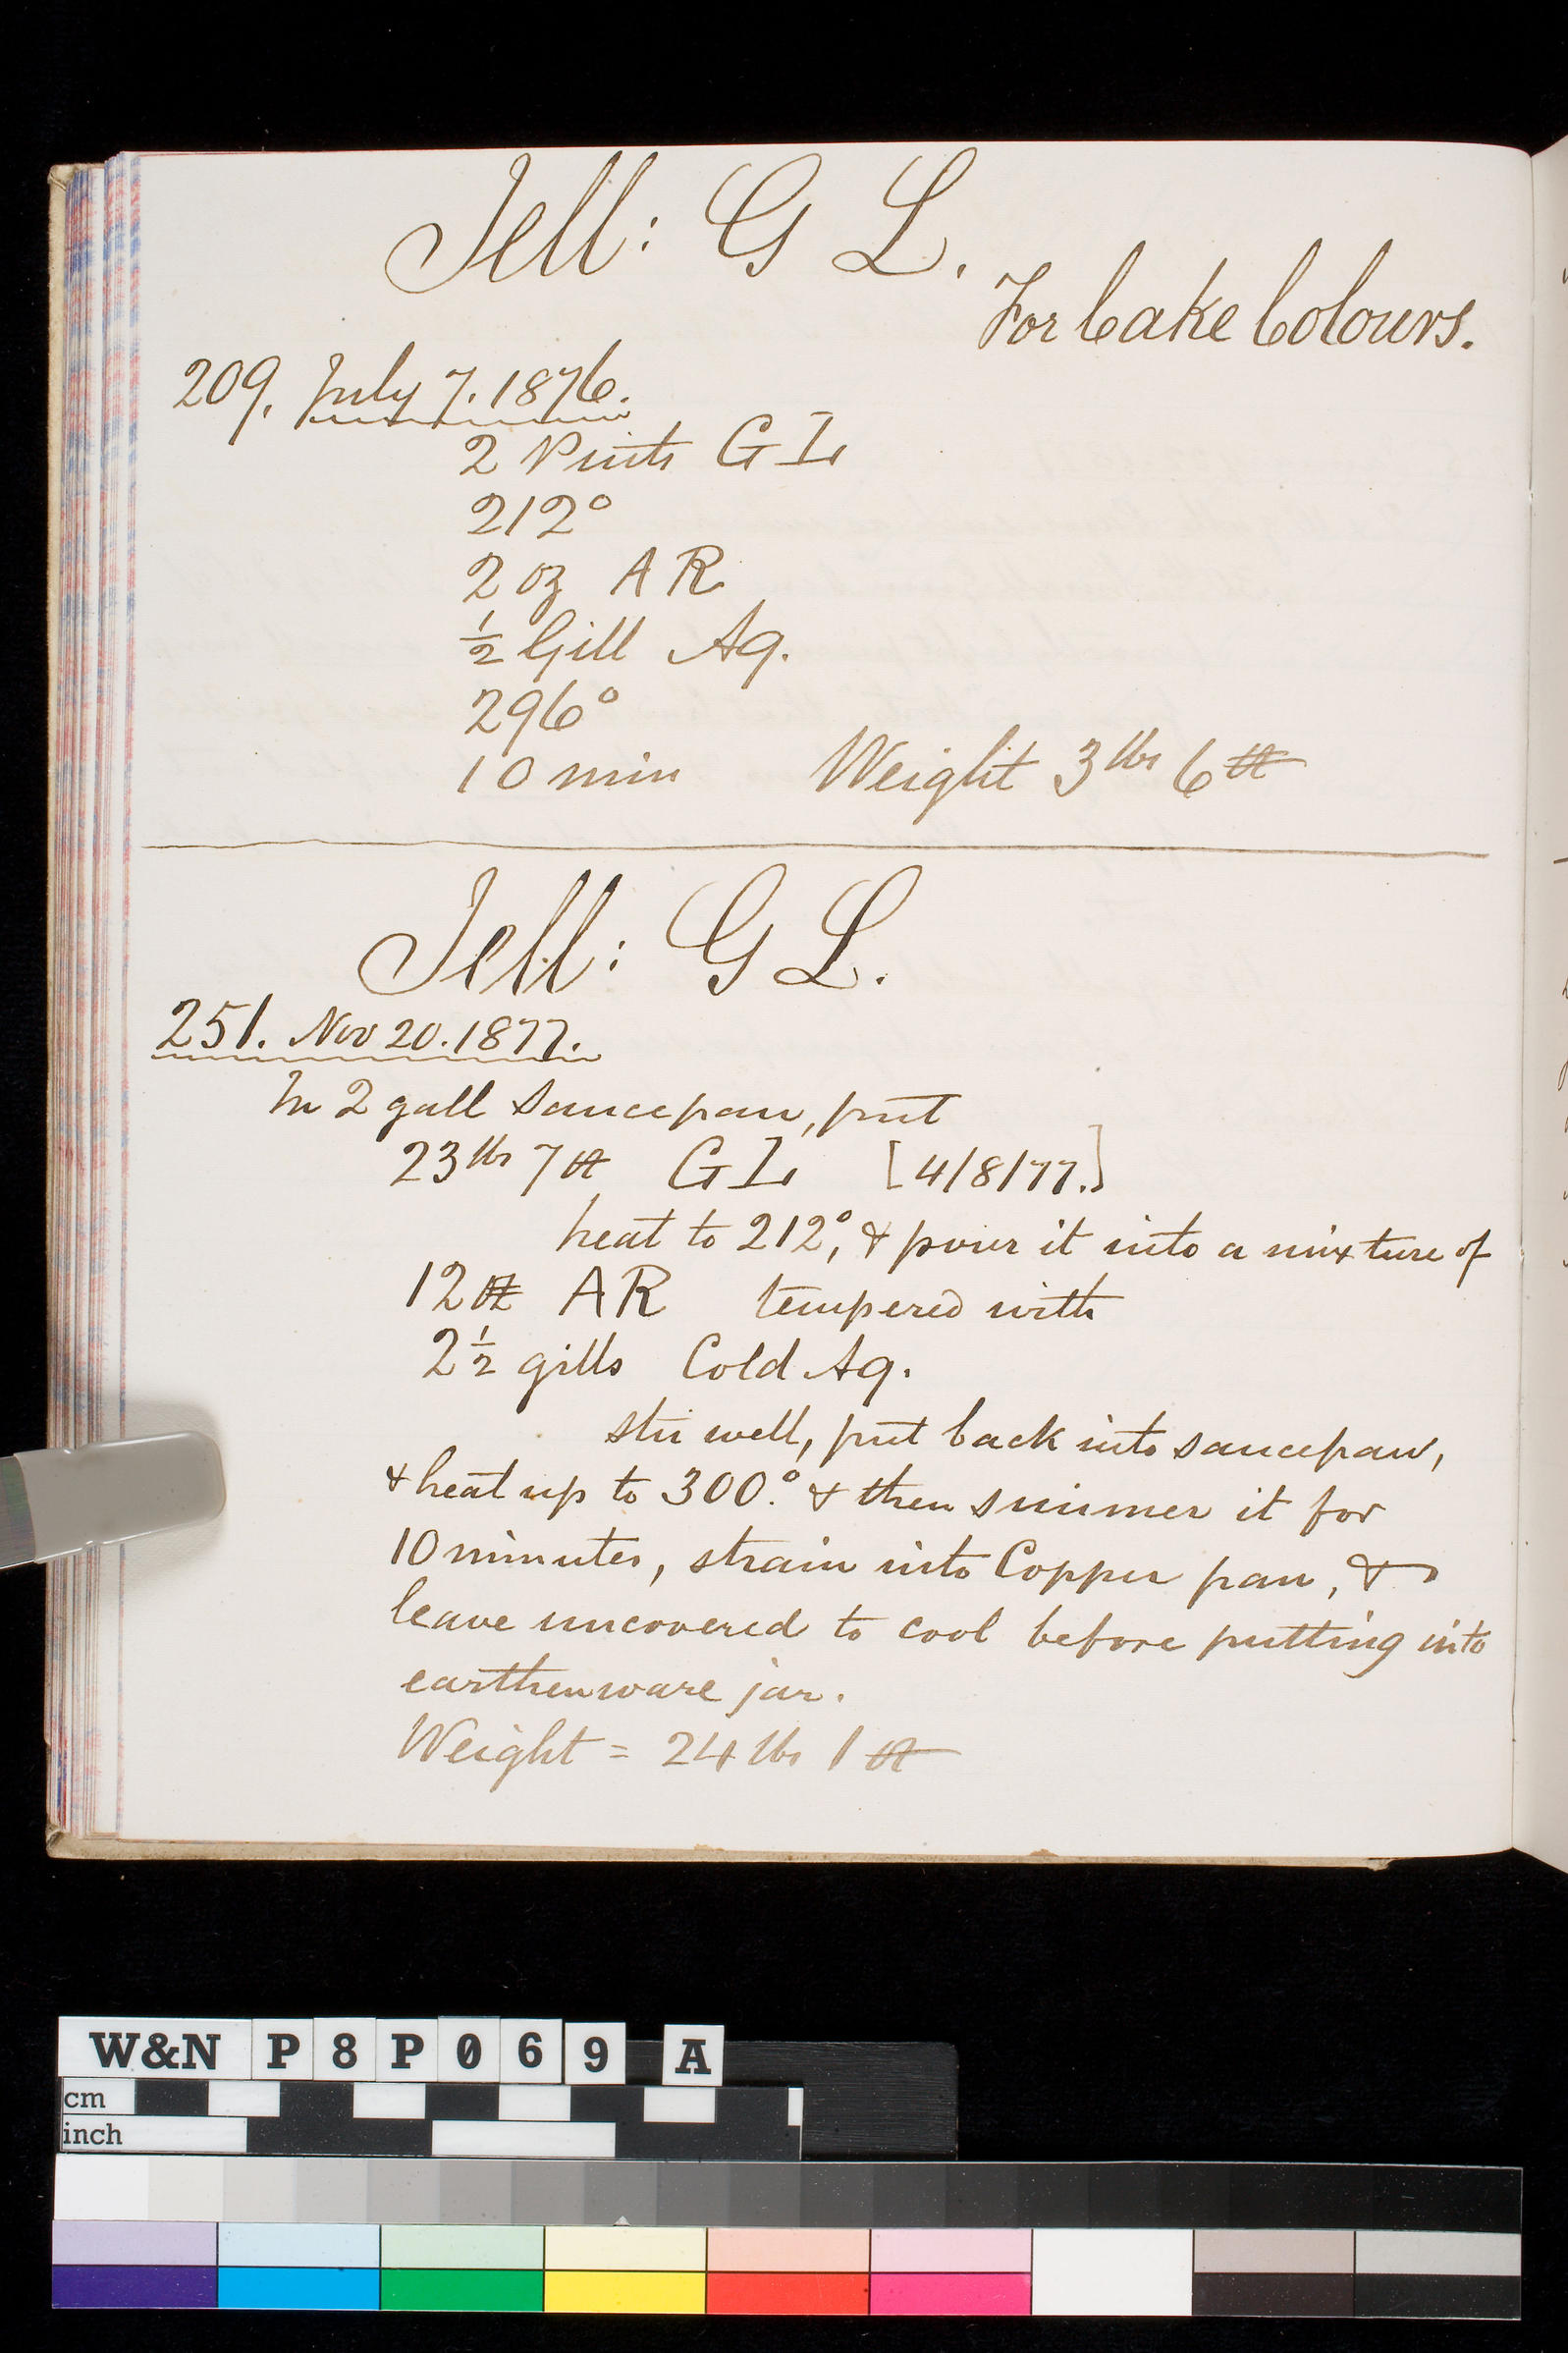 Jell: G L.
For Cake Colours.
209. July 7. 1876.
2 Pints G L
212°
2 oz A R
½ Gill Aq.
296°
10 min Weight 3 lbs 6
Jell: G L.
251. Nov 20. 1877.
In 2 gall saucepan, put
23 lbs 7 G L [4/8/77.]
heat to 212°, & pour it into a mixture of
12 A R tempered with
2½ gills Cold Aq.
stir well, put back into saucepan,
& heat up to 300.° & then simmer it for
10 minutes, strain into Copper pan, &
leave uncovered to cool before putting into
earthenware jar.
Weight = 24 lbs 1
W&N P8P069 A
cm
inch